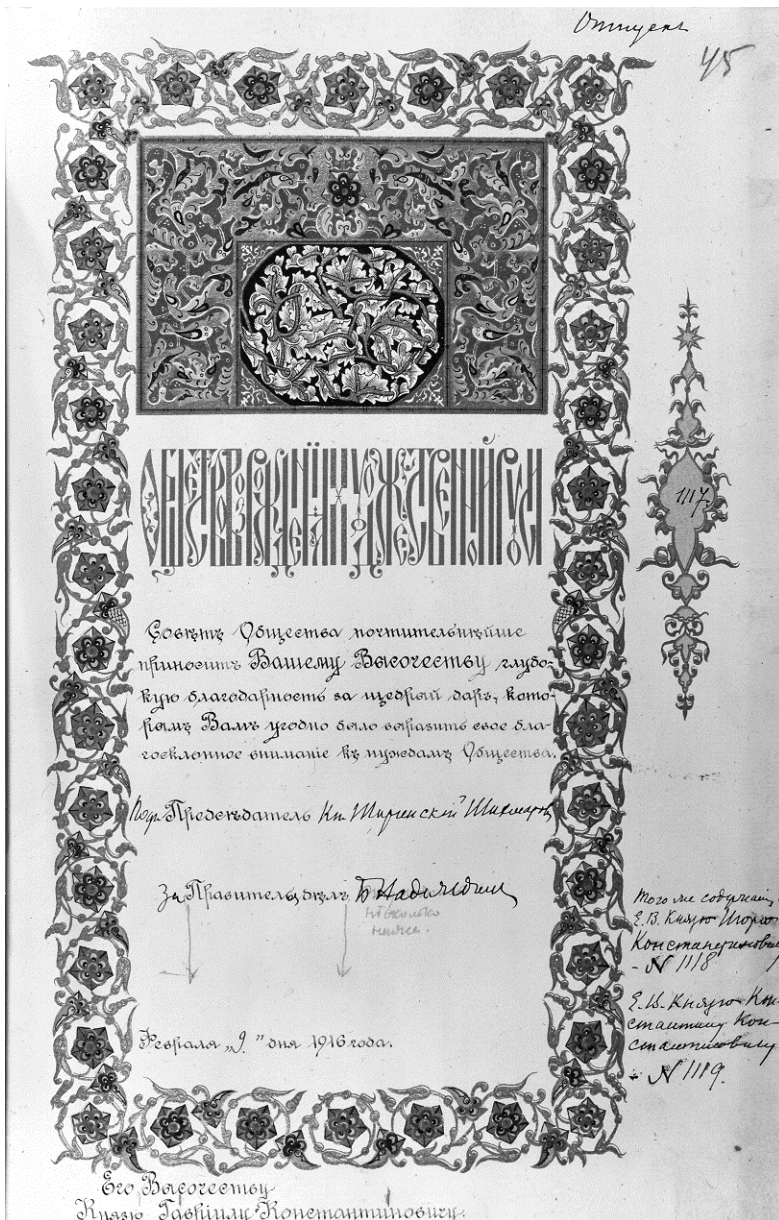 Отпускъ
45
ОБЩЕСТВО ВОЗРОЖДЕНІЯ ХУДОЖЕСТВЕННОЙ РУСИ
1117.
Совѣтъ Общества почтительнѣйше
приноситъ Вашему Высочеству глубо-
кую благодарность за щедрый даръ, кото-
рымъ Вамъ угодно было выразить свое бла-
госклонное вниманіе къ нуждамъ Общества.
Подп. Предсѣдатель Кн. Ширинскій Шихматовъ
За Правитель дѣлъ
нѣсколько
ниже.
Того же содержанія
Е.В. Князю Игорю
Константиновичу
- N 1118
Е.В. Князю Кон-
стантину Кон-
стантиновичу
- N 1119.
Февраля „9" дня 1916 года.
Его Высочеству
Князю Гавріилу Константиновичу.